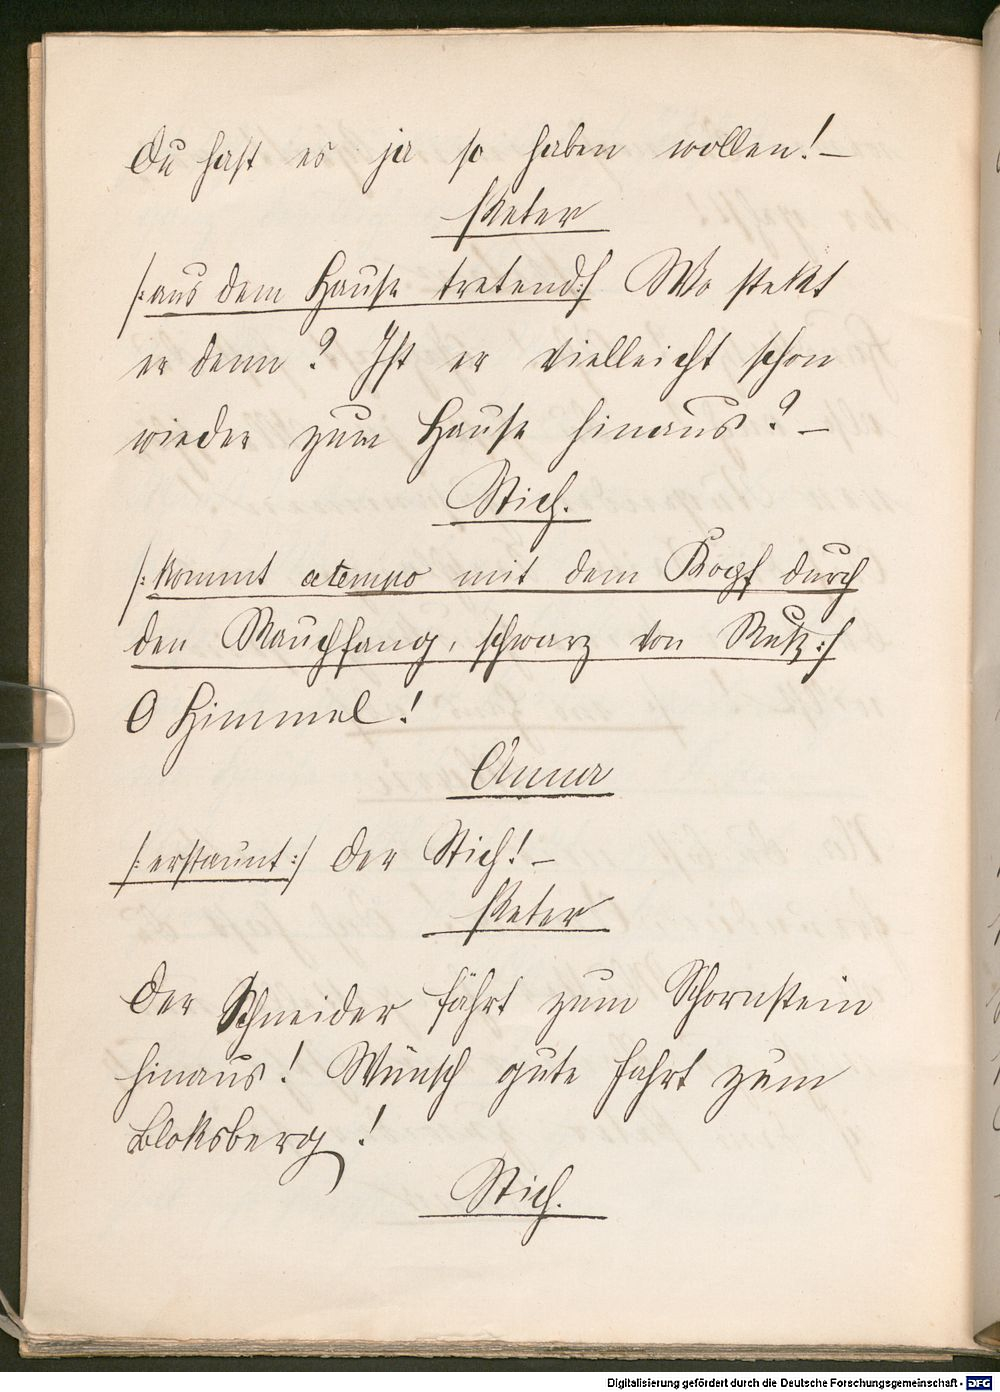 Du hast es ja so haben wollen! –
Peter
/: aus dem Hause tretend :/ Wo stekt
er denn? Ist er vielleicht schon
wieder zum Hause hinaus? –
Stich.
/: kommt atempo mit dem Kopf durch
den Rauchfang, schwarz von Ruß :/
O Himmel!
Anna
/: erstaunt :/ Der Stich! –
Peter
Der Schneider fährt zum Schornstein
hinaus! Wünsch gute Fahrt zum
Bloksberg!
Stich.
Digitalisierung gefördert durch die Deutsche Forschungsgemeinschaft - DFG